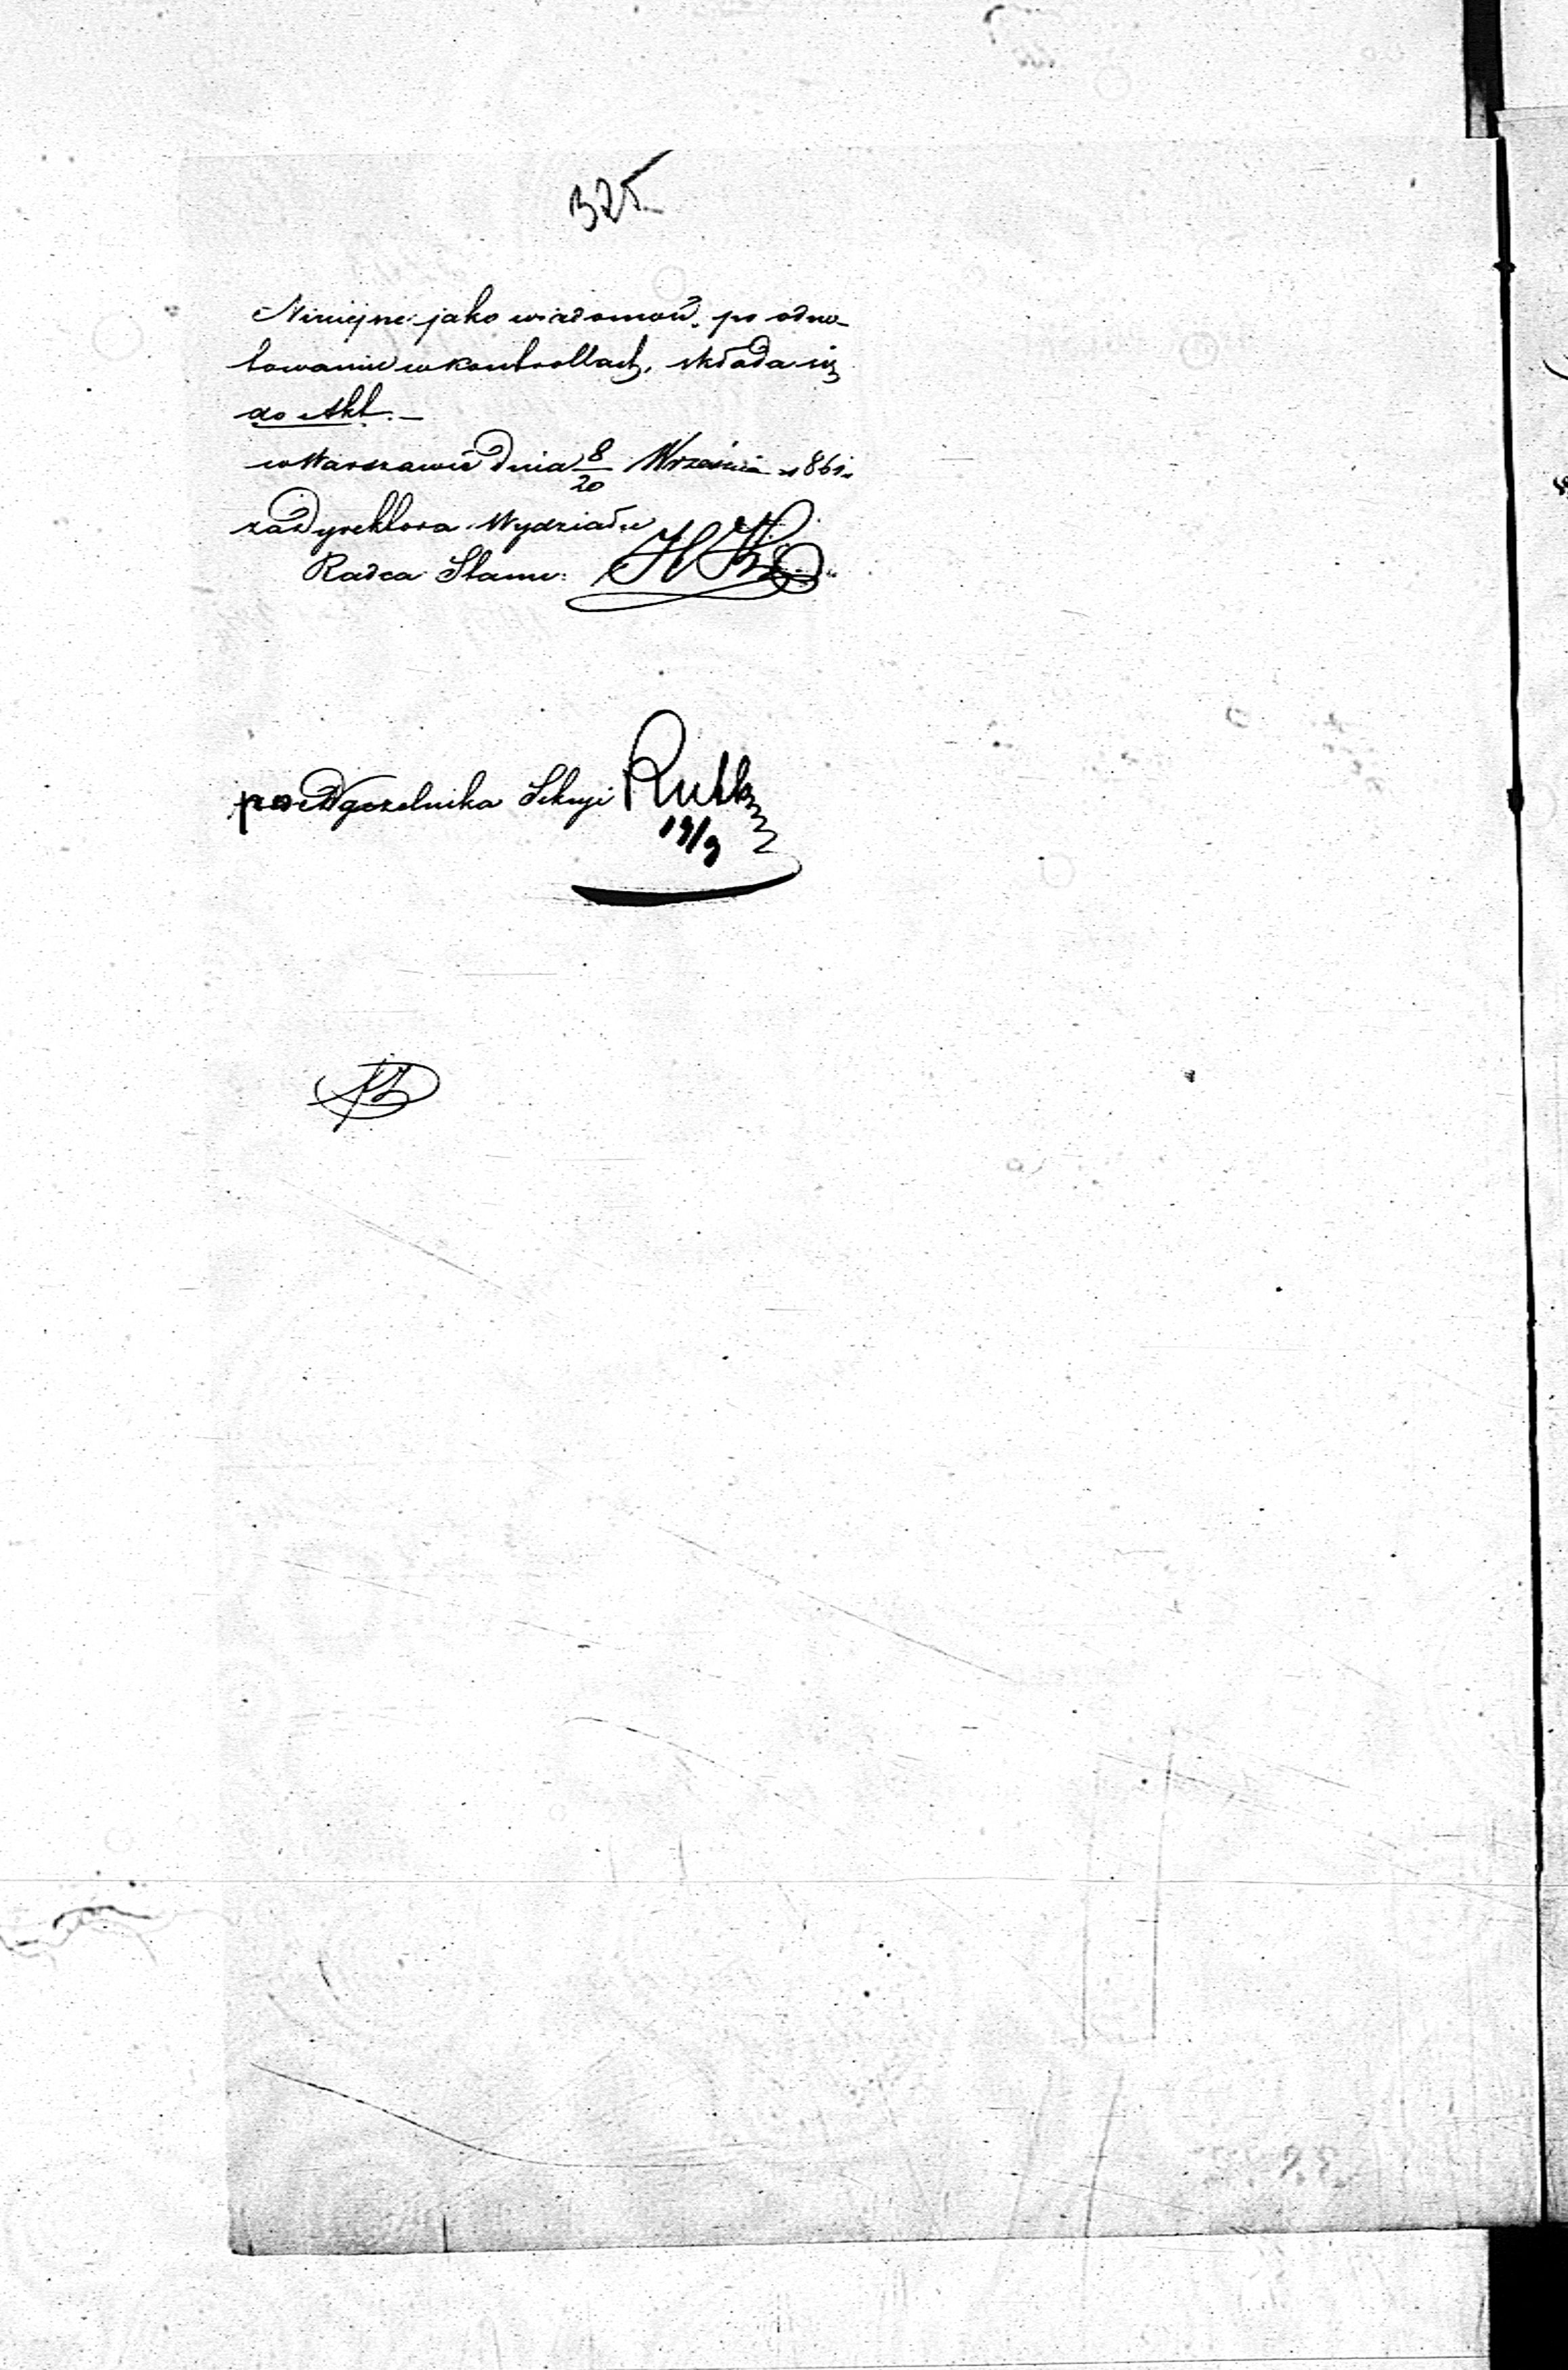 325
Niniejsze jako wiadomość, po odno-
towaniu w kontrollach, składa się
do Akt. —
w Warszawie dnia 8/20 Września 1861.
za Dyrektora Wydziału
Radca Stanu:
Naczelnika Sekcyi
19/9